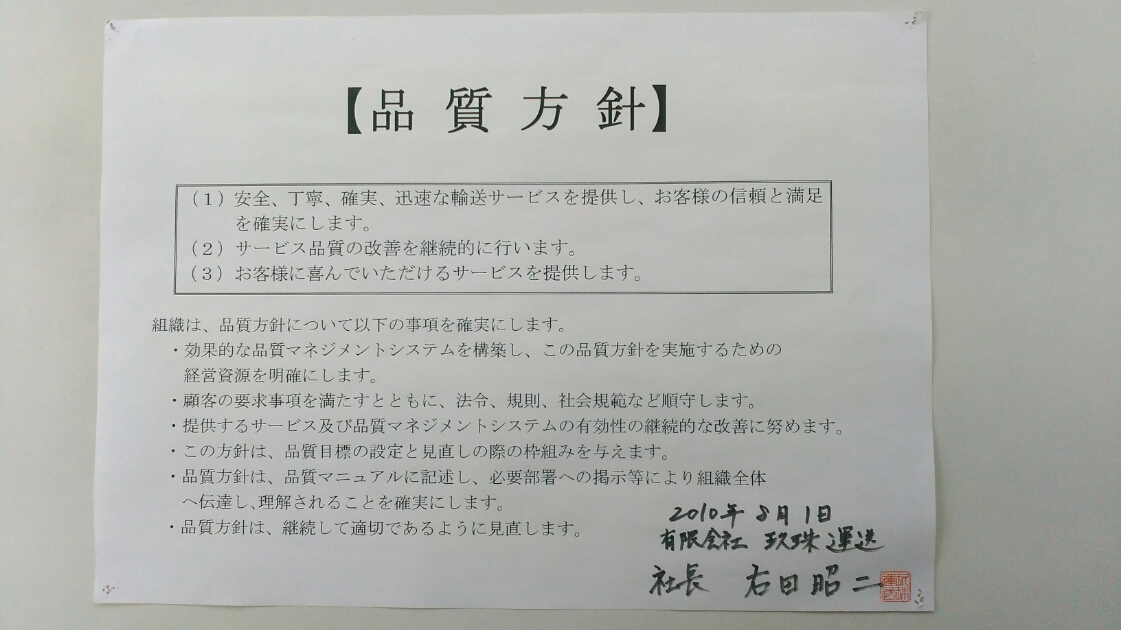 【品質方針】
（１）安全、丁寧、確実、迅速な輸送サービスを提供し、お客様の信頼と満足
を確実にします。
（２）サービス品質の改善を継続的に行います。
（３）お客様に喜んでいただけるサービスを提供します。
組織は、品質方針について以下の事項を確実にします。
・効果的な品質マネジメントシステムを構築し、この品質方針を実施するための
経営資源を明確にします。
・顧客の要求事項を満たすとともに、法令、規則、社会規範など順守します。
・提供するサービス及び品質マネジメントシステムの有効性の継続的な改善に努めます。
・この方針は、品質目標の設定と見直しの際の枠組みを与えます。
・品質方針は、品質マニュアルに記述し、必要部署への掲示等により組織全体
へ伝達し、理解されることを確実にします。
・品質方針は、継続して適切であるように見直します。
2010年 8月 1日
有限会社 玖珠運送
社長 右田昭二